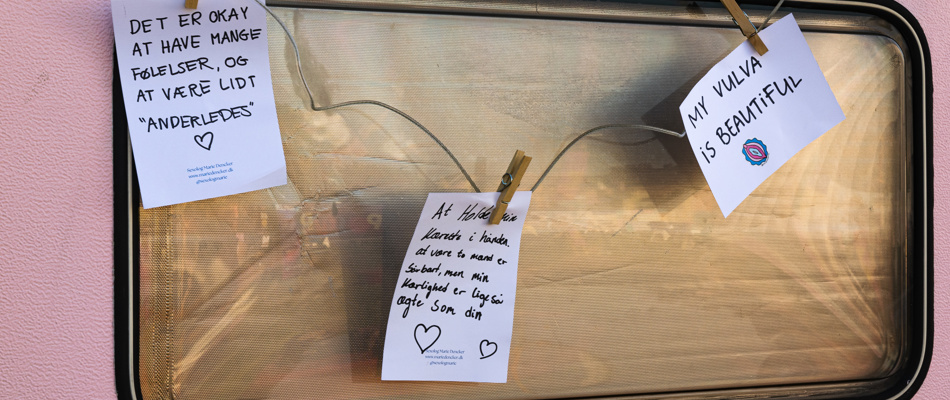 DET ER OKAY
AT HAVE MANGE
FØLELSER, OG
AT VÆRE LIDT
"ANDERLEDES"
Sexolog Marie Dencker
www.mariedencker.dk
@sexologmarie
At Holde min
Kæreste i hånden.
at være to mænd er
Sårbart, men min
Kærlighed er ligeså
ægte som din
Sexolog Marie Dencker
www.mariedencker.dk
@sexologmarie
MY VULVA
iS BEAUTiFUL